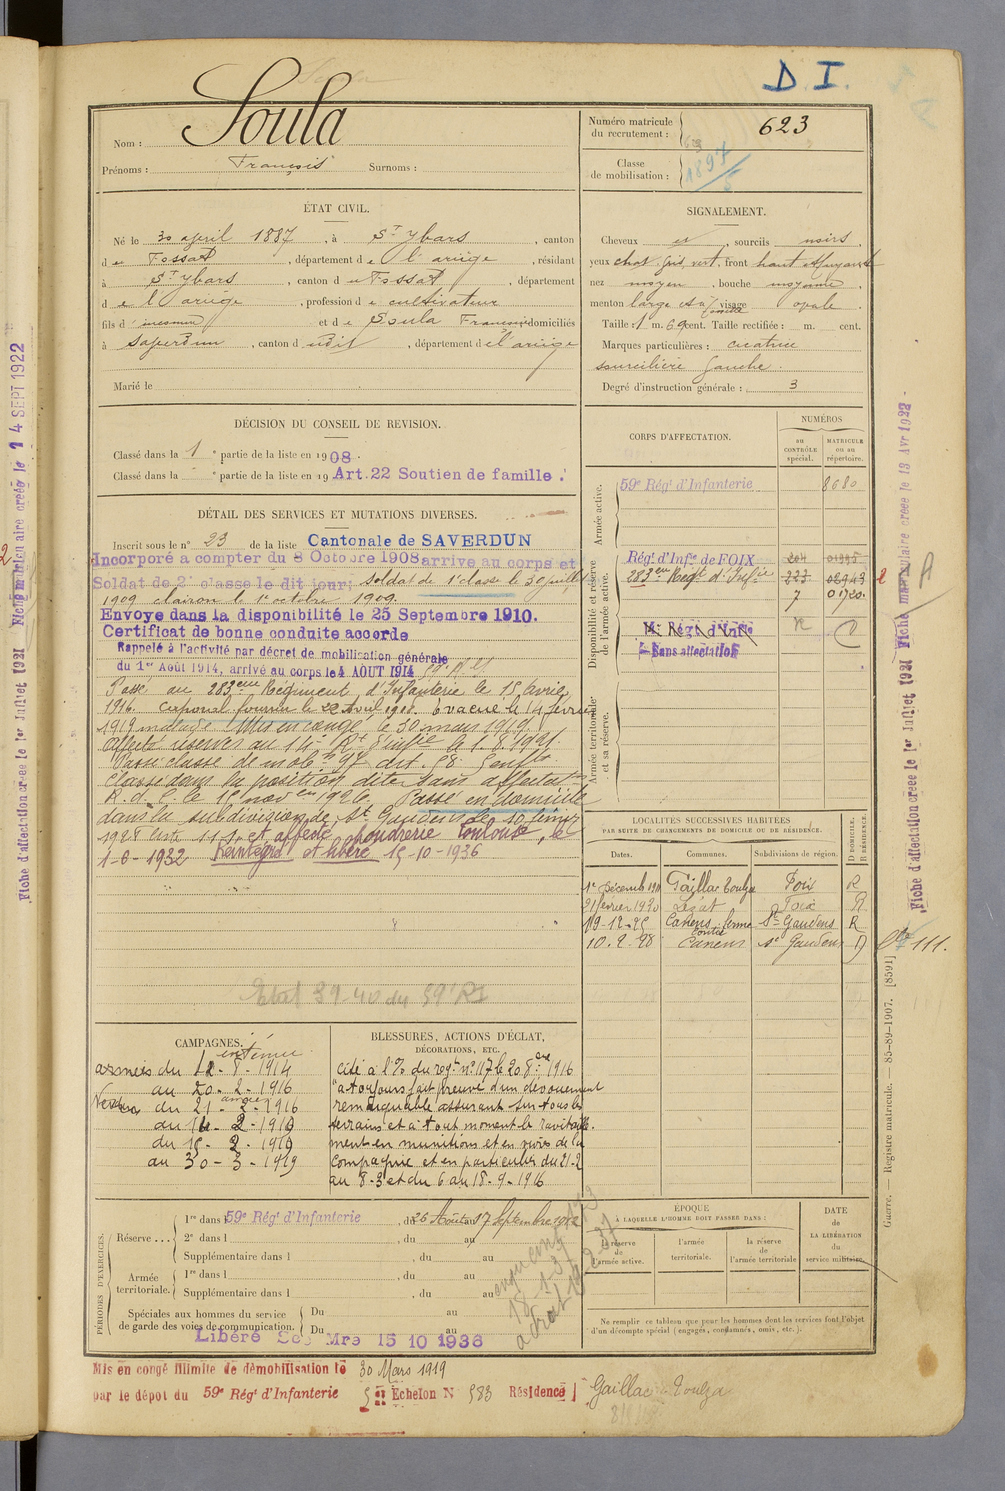 D I.
Nom : Soula
Prénoms : François Surnoms :
Numéro matricule du recrutement : 623
Classe de mobilisation : 1897/5
ÉTAT CIVIL.
Né le 30 april 1887, à St Ybars, canton
de Fossat, département de l'ariège, résidant
à St Ybars, canton du Fossat, département
de l'ariège, profession de cultivateur
fils d'inconnu et de Soula Françoise domiciliés
à Saverdun, canton dudit, département de l'ariège
Marié le
SIGNALEMENT.
Cheveux et, sourcils noirs
yeux chat. gris vert, front haut et fuyant
nez moyen, bouche moyenne
menton large et à visage ovale
Taille : 1 m. 69 cent. Taille rectifiée : m. cent.
Marques particulières : cicatrice
sourcilière gauche.
Degré d'instruction générale : 3
DÉCISION DU CONSEIL DE REVISION.
Classé dans la 1e partie de la liste en 1908.
Classé dans la e partie de la liste en 19 Art.22 Soutien de famille.
DÉTAIL DES SERVICES ET MUTATIONS DIVERSES.
Inscrit sous le n° 29 de la liste Cantonale de SAVERDUN
Incorporé à compter du 8 Octobre 1908 arrivé au corps et
Soldat de 2e classe le dit jour; soldat de 1e classe le 30 juillet
1909 clairon le 1er octobre 1909.
Envoyé dans la disponibilité le 25 Septembre 1910.
Certificat de bonne conduite accordé
Rappelé à l'activité par décret de mobilisation générale
du 1er Août 1914, arrivé au corps le 4 AOUT 1914 59e RI
Passé au 283eme Régiment d'Infanterie le 15 avril
1916. Caporal fourrier le 22 avril 1916. Evacué le 14 février
1919 malade. Mis en congé le 30 mars 1919.
Affecté réserves au 14e Rt d'Infie le 1.8.1921
Passé classe de mobon 97 art. 58. 5 enfts
Classé dans la position dite sans affectation
R.d.C. le 1er novbre 1926. Passé en domicile
dans la subdivision de St Gaudens le 10 février
1928 et affecté poudrerie Toulouse, le
1-6-1932 Réintégré et libéré 15-10-1936
Etat 39-40 du 59e RI
CORPS D'AFFECTATION.
NUMÉROS
au contrôle spécial.
matricule ou au répertoire.
Armée active.
59e Régt d'Infanterie 8680
Disponibilité et réserve de l'armée active.
Régt d'Infie de FOIX 204 01995
283eme Régt d'Infie 323 02943
7 01720
14e Régt d'Infie
Sans affectation
Armée territoriale et sa réserve.
LOCALITÉS SUCCESSIVES HABITÉES
PAR SUITE DE CHANGEMENTS DE DOMICILE OU DE RÉSIDENCE.
Dates. Communes. Subdivisions de région. D DOMICILE. R RÉSIDENCE.
1er Décemb 1911 Gaillac Toulza Foix R
21 février 1920 Lézat Foix R
19-12-25 Canens ferme St Gaudens R
10.2.28 Canens St Gaudens D
111.
CAMPAGNES.
intérieur
armées du 12-8-1914
au 20-2-1916
Verdun du 21-2-1916
armées
au 14-2-1919
du 15-2-1919
au 30-3-1919
BLESSURES, ACTIONS D'ÉCLAT,
DÉCORATIONS, ETC.
cité à l'O/ du régt n° 117 le 20 8bre 1916
"a toujours fait preuve d'un dévouement
remarquable assurant sur tous les
terrains et à tout moment le ravitaille-
ment en munitions et en vivres de la
compagnie et en particulier du 21-2
au 8-3 et du 6 au 18-9-1916
PÉRIODES D'EXERCICES.
Réserve... 1re dans l 59e Régt d'Infanterie, du 26 Août au 17 Septembre 1912
2e dans l , du au
Supplémentaire dans l , du au
Armée territoriale. 1re dans l , du au
Supplémentaire dans l , du au
Spéciales aux hommes du service de garde des voies de communication. Du au
Du au
Libéré Ser Mre 15 10 1936
ÉPOQUE
À LAQUELLE L'HOMME DOIT PASSER DANS :
la réserve de l'armée active. l'armée territoriale. la réserve de l'armée territoriale
DATE DE LA LIBÉRATION du service militaire.
Ne remplir ce tableau que pour les hommes dont les services font l'objet
d'un décompte spécial (engagés, condamnés, omis, etc.).
Mis en congé illimité de démobilisation le 30 Mars 1919
par le dépôt du 59e Régt d'Infanterie 5e Echelon N 583 Résidence Gaillac Toulza
Fiche d'affectation créée le 1er Juillet 1921 Fiche matriculaire créée le 14 SEPT 1922
Fiche d'affectation créée le 1er Juillet 1921 Fiche matriculaire créée le 13 Avr 1922
Guerre. — Registre matricule. — 85-89-1907. [8591]